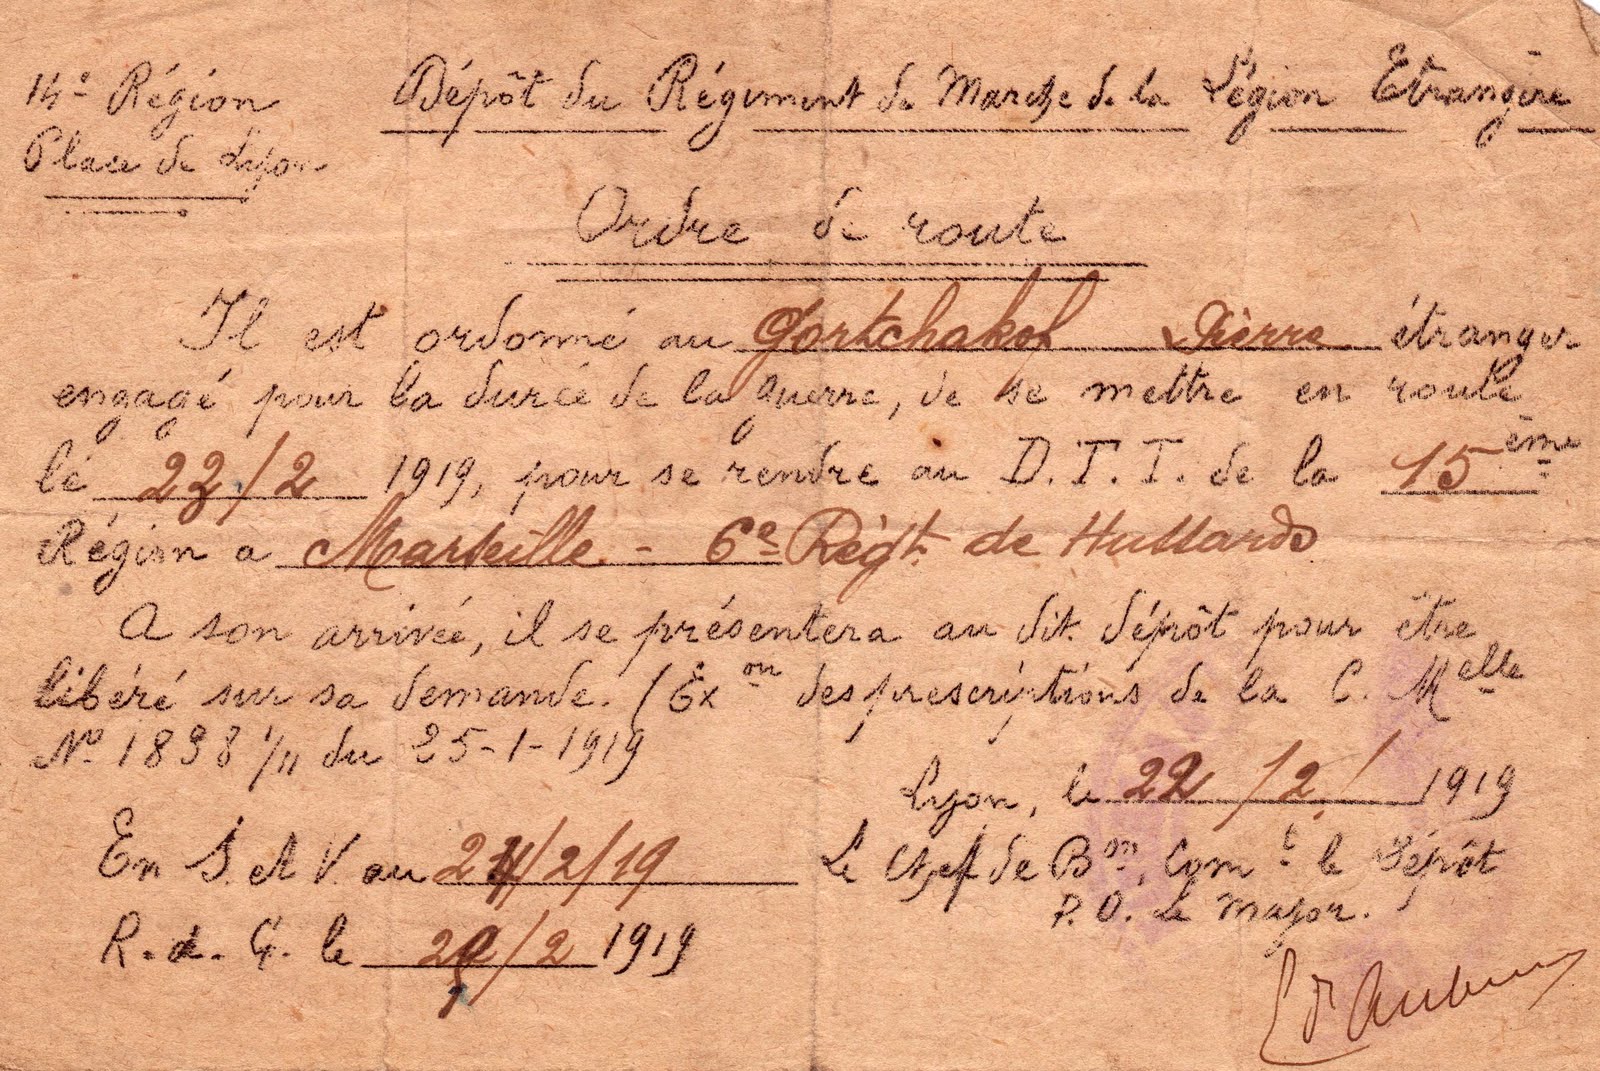 14e Région
Place de Lyon
Dépôt du Régiment de Marche de la Légion Etrangère
Ordre de route
Il est ordonné au Gortchakof Pierre étranger
engagé pour la durée de la guerre, de se mettre en route
le 23/2 1919, pour se rendre au D.T.I. de la 15ème
Région a Marseille - 6e Régt. de Hussards
A son arrivée, il se présentera au dit dépôt pour être
libéré sur sa demande. (Exon des prescriptions de la C. Melle
No 1898 1/11 du 25-1-1919
Lyon, le 22/2/ 1919
En S. et V. au 24/2/19
R. d. G. le /2 1919
Le Chef de Bon, Comt le Dépôt
P.O. le Major.